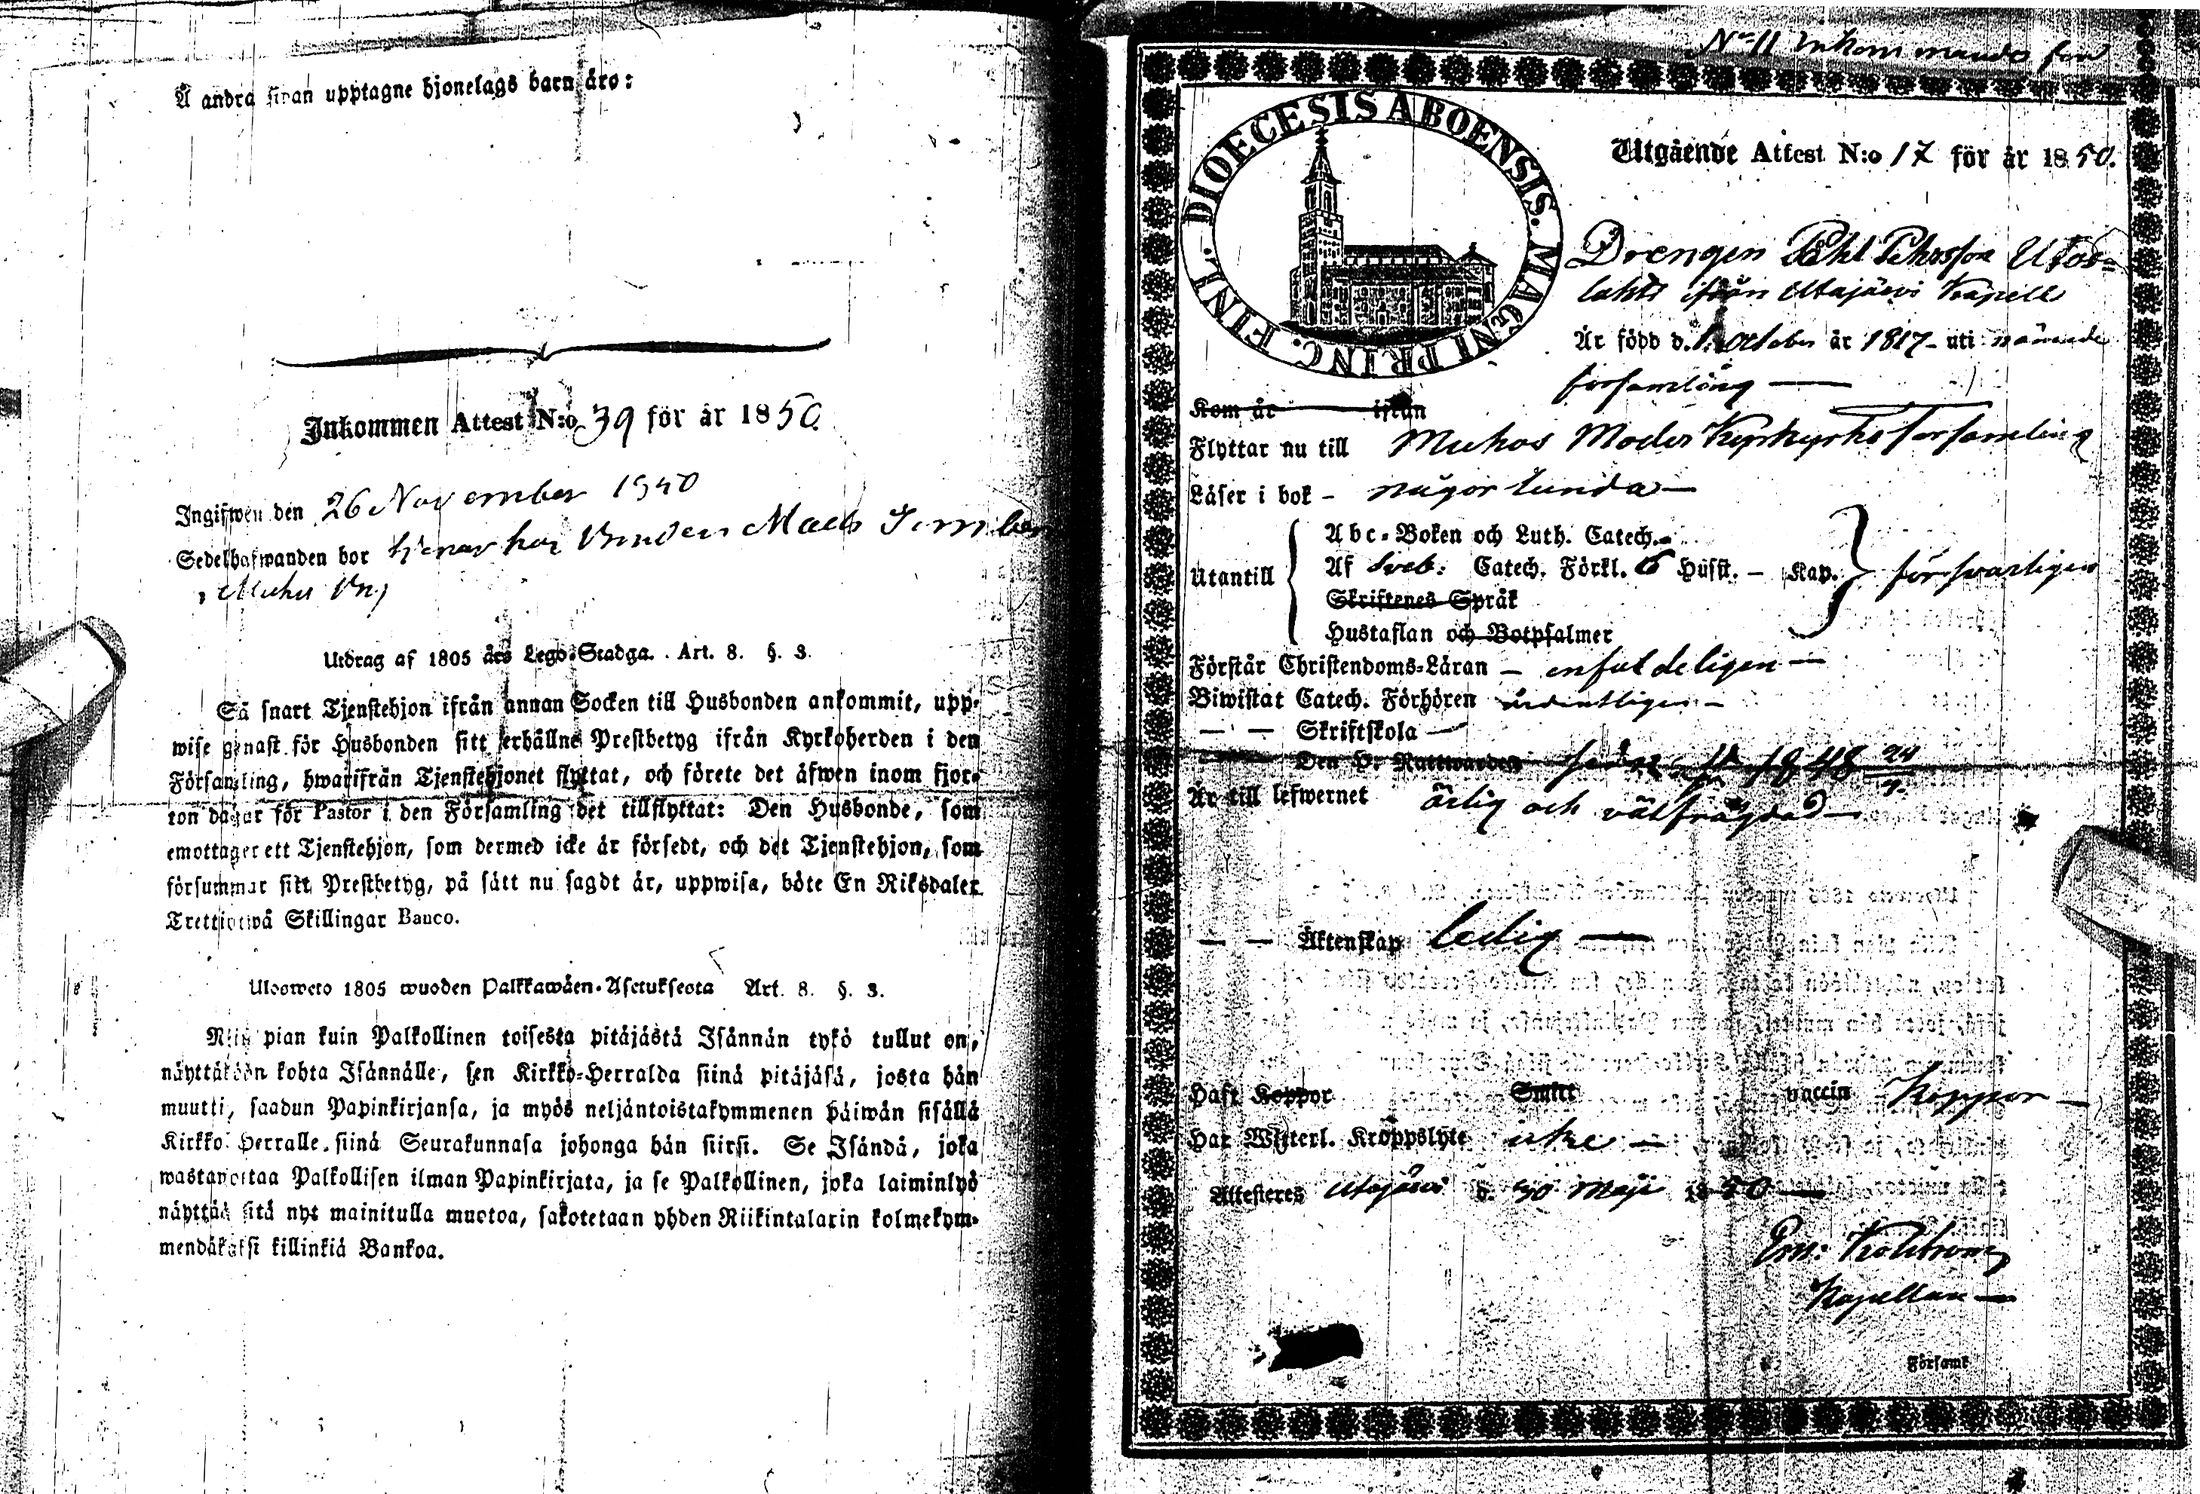 Å andra sidan upptagne hjonelags barn äro:
Inkommen Attest N:o 39 för år 1850.
Ingifwen den 26 November 1850
Sedelhafwanden bor tjenar hos Bonden Mats
Muhos By
Utdrag af 1805 års Lego-Stadga. Art. 8. §. 3.
Så snart Tjenstehjon ifrån annan Socken till Husbonden ankommit, upp-
wise genast för Husbonden sitt erhållne Prestbetyg ifrån Kyrkoherden i den
Församling, hwarifrån Tjenstehjonet flyttat, och förete det äfwen inom fjor-
ton dagar för Pastor i den Församling det tillflyttat: Den Husbonde, som
emottager ett Tjenstehjon, som dermed icke är försedt, och det Tjenstehjon, som
försummar sitt Prestbetyg, på sätt nu sagdt är, uppwisa, böte En Riksdaler
Trettiotwå Skillingar Banco.
Ulosweto 1805 wuoden Palkkawäen-Asetuksesta Art. 8. §. 3.
Niin pian kuin Palkollinen toisesta pitäjästä Isännän tykö tullut on,
näyttäköön kohta Isännälle, sen Kirkko-Herralda siinä pitäjäsä, josta hän
muutti, saadun Papinkirjansa, ja myös neljäntoistakymmenen päiwän sisällä
Kirkko Herralle siinä Seurakunnasa johonga hän siirsi. Se Isändä, joka
wastanottaa Palkollisen ilman Papinkirjata, ja se Palkollinen, joka laiminlyö
näyttää sitä nyt mainitulla muotoa, sakotetaan yhden Riikintalarin kolmekym-
mendäkaksi killinkiä Bankoa.
N:o 11 Inkommande för
DIOECESIS ABOENSIS. MAGNI PRINC. FINL.
Utgående Attest N:o 17 för år 1850.
Drengen Påhl Pehrsson Utos-
lahti ifrån Utajärvi Kapell
Är född d. 1 October år 1817 - uti nämnde
församling
Kom år ifrån
Flyttar nu till Muhos Moder Kyrko Församling
Läser i bok - någorlunda
Utantill
Abc-Boken och Luth. Catech.
Af Sveb: Catech. Förkl. 6 Hufst. - Kap. försvarligen
Skriftenes Språk
Hustaflan och Botpsalmer
Förstår Christendoms-Läran - enfaldeligen
Biwistat Catech. Förhören ordentligen
— — Skriftskola
Den H. Nattwarden 1848 24
Är till lefwernet ärlig och välfrägdad
— — Äktenskap ledig
Haft Koppor Smitt vaccin Koppor
Har Witterl. Kroppslyte icke
Attesteres Utajärvi d. 30 Maji 1850
Em: Kohlström
Kapellan
Församl